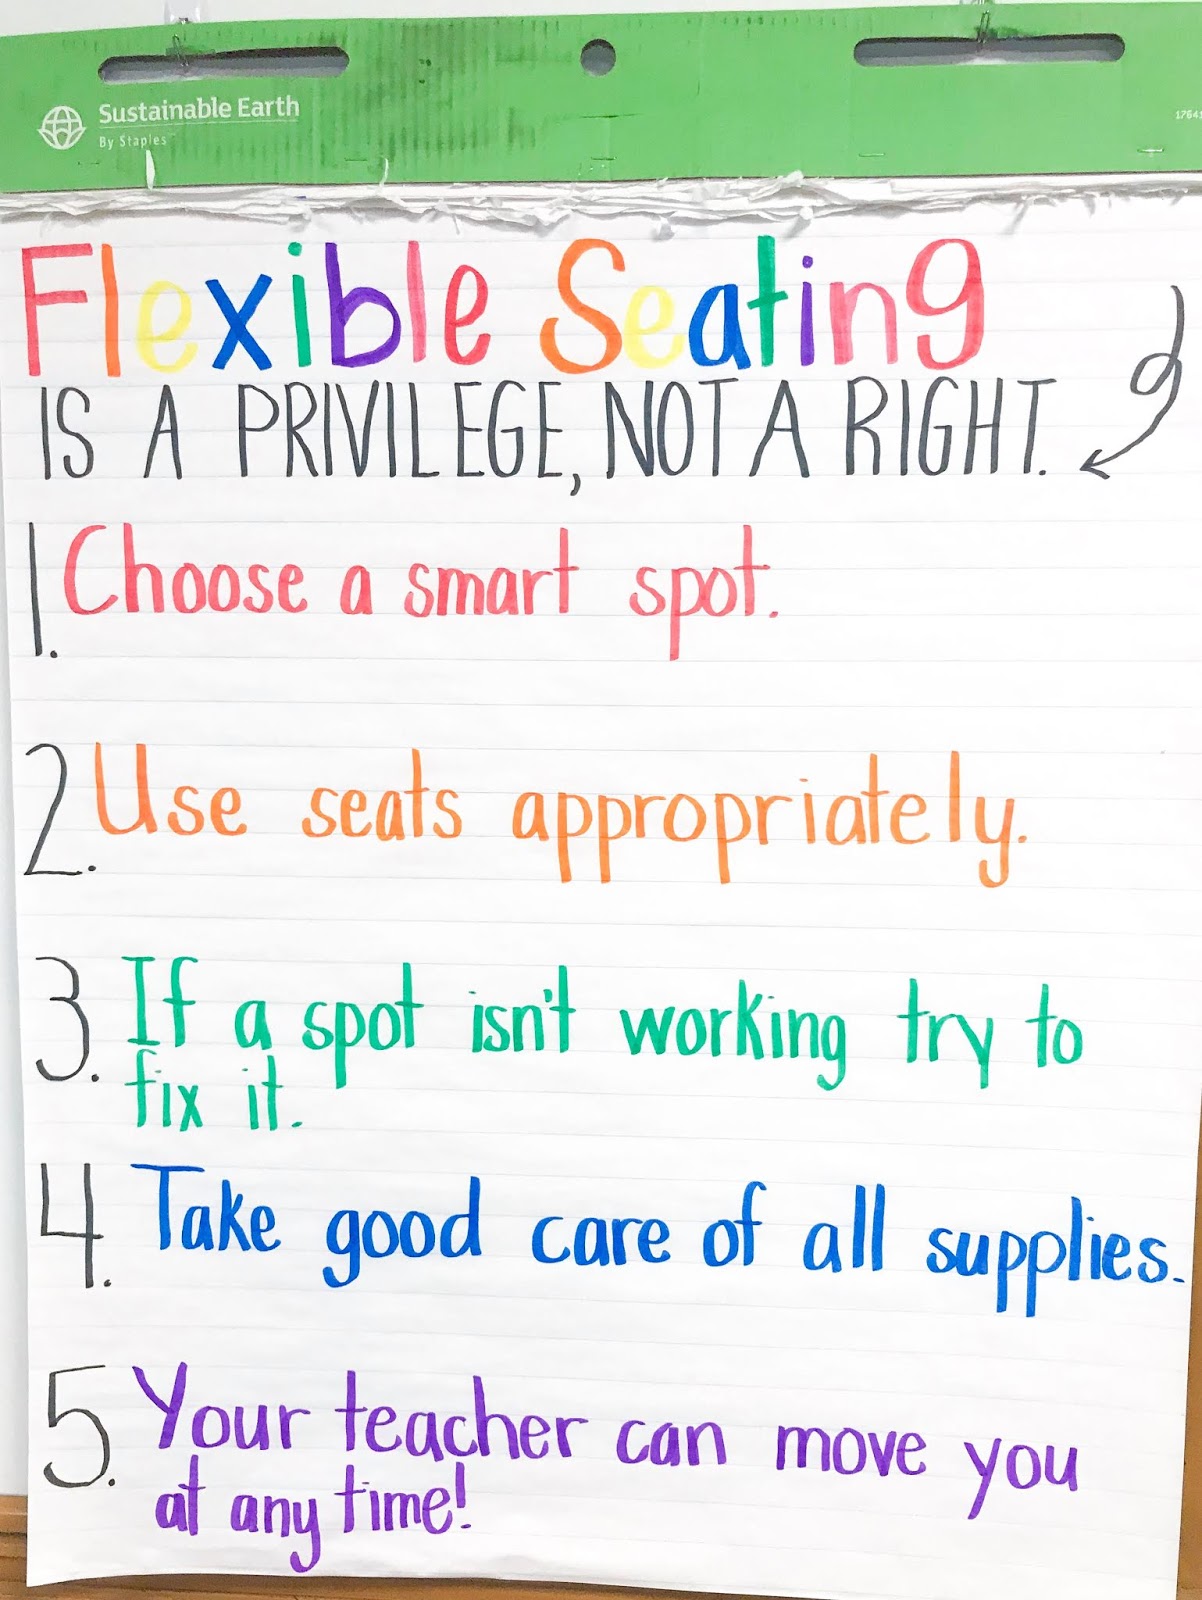 Sustainable Earth
By Staples™
Flexible Seating
IS A PRIVILEGE, NOT A RIGHT.
1. Choose a smart spot.
2. Use seats appropriately.
3. If a spot isn't working try to
fix it.
4. Take good care of all supplies.
5. Your teacher can move you
at any time!